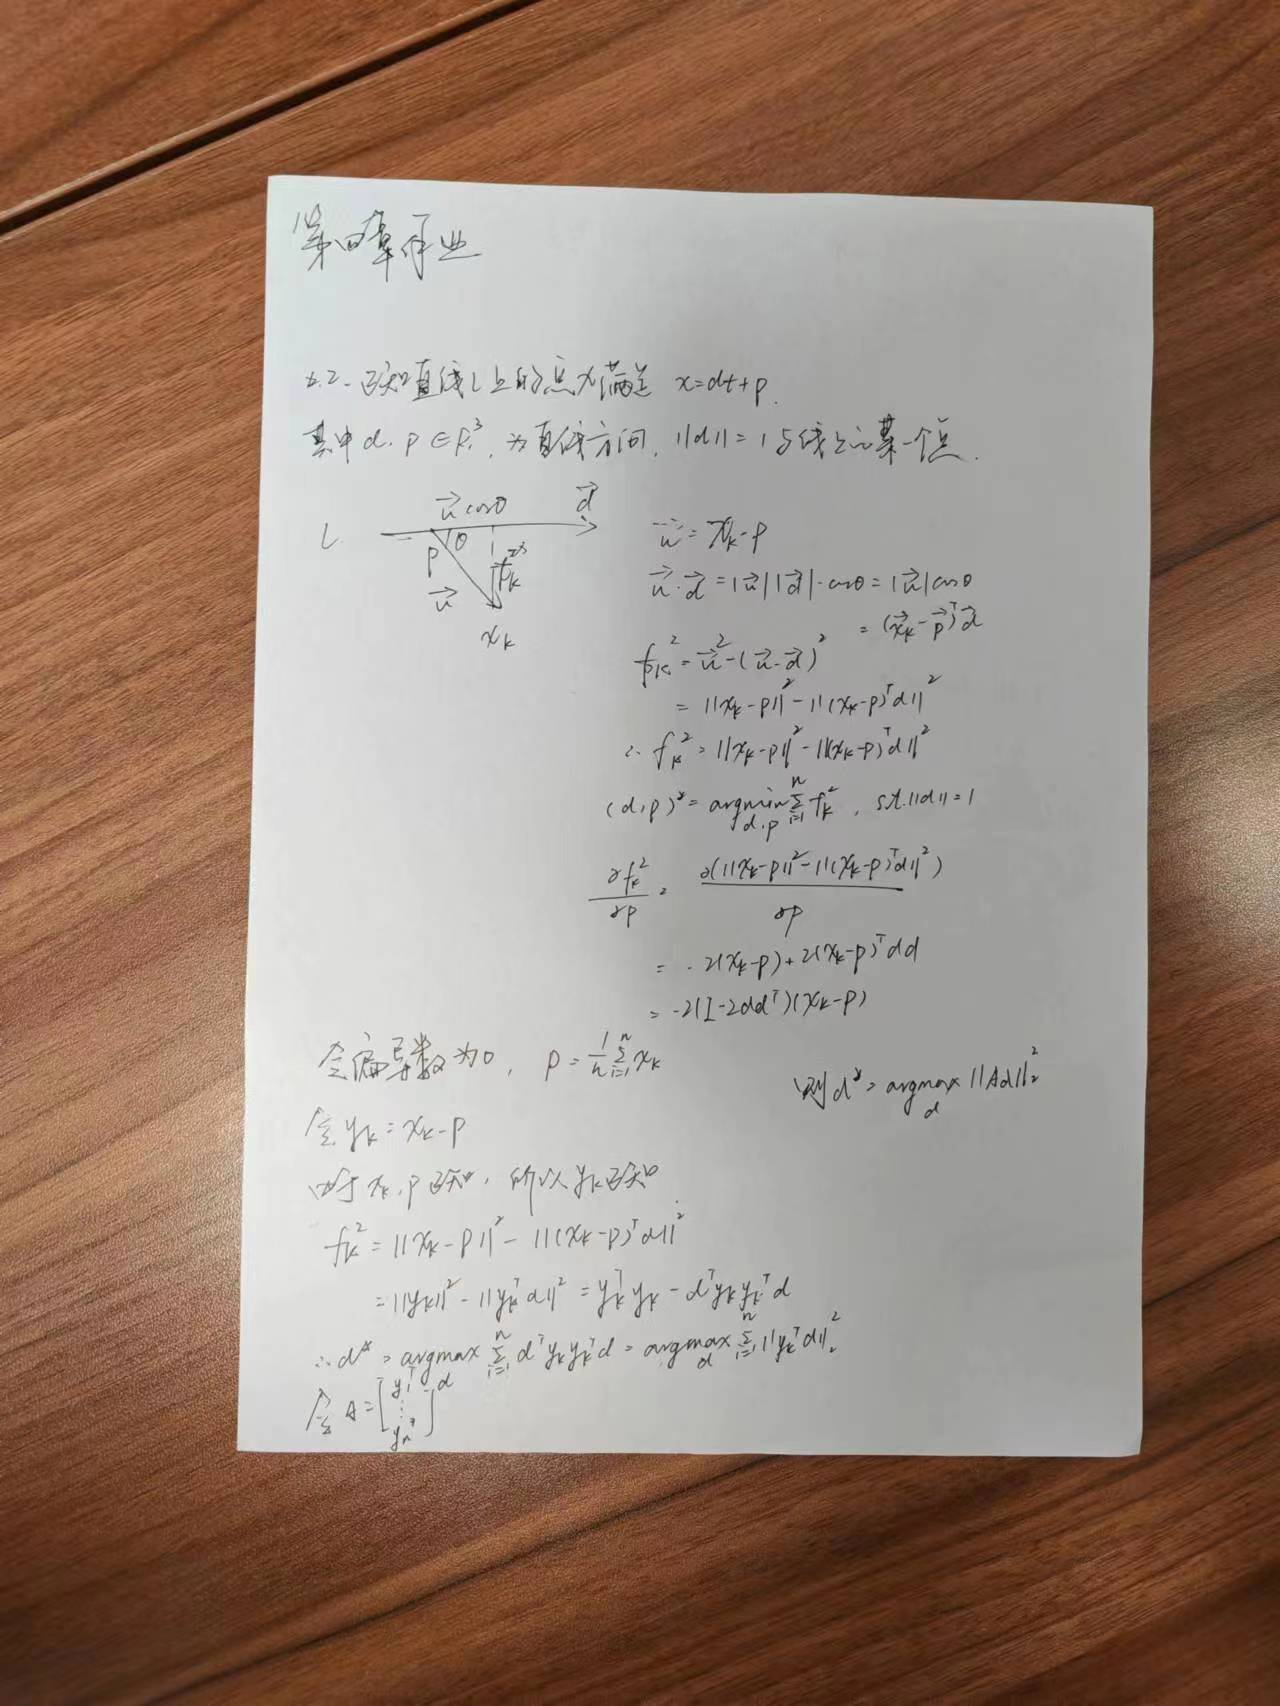 第四章作业
2.2-已知直线L上的点x满足 x=dt+p.
其中d.p∈R³, 为直线方向, ||d||=1与线上的某一个点.
L
u⃗ cosθ
d⃗
p
θ
u⃗
f_k
x_k
u⃗=x_k-p
u⃗·d⃗=|u⃗||d⃗|·cosθ=|u⃗|cosθ
=(x⃗_k-p⃗)ᵀd⃗
f_k²=u⃗²-(u⃗·d⃗)²
=||x_k-p||²-||(x_k-p)ᵀd||²
∴ f_k²=||x_k-p||²-||(x_k-p)ᵀd||²
(d,p)*=argmin_{d,p} Σ_{i=1}^{n} f_k², s.t.||d||=1
∂f_k²/∂p = ∂(||x_k-p||²-||(x_k-p)ᵀd||²)/∂p
=-2(x_k-p)+2(x_k-p)ᵀdd
=-2(I-2ddᵀ)(x_k-p)
令偏导数为0, p=1/n Σ_{i=1}^{n} x_k
令y_k=x_k-p
由于x_k,p已知,所以y_k已知
f_k²=||x_k-p||²-||(x_k-p)ᵀd||²
=||y_k||²-||y_kᵀd||²=y_kᵀy_k-dᵀy_ky_kᵀd
∴d*=argmax_d Σ_{i=1}^{n} dᵀy_ky_kᵀd=argmax_d Σ_{i=1}^{n}||y_kᵀd||₂²
令A=[y₁ᵀ ⋮ y_nᵀ]
则d*=argmax_d ||Ad||₂²